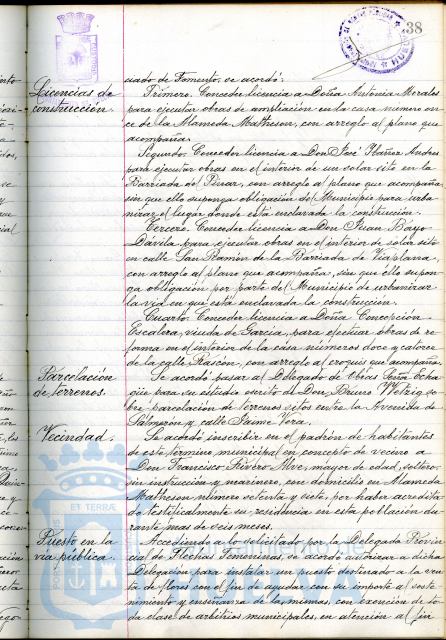 38
Licencias de
construcción.
cuado de Fomento, se acordó:
Primero. Conceder licencia a Doña Antonia Morales
para ejecutar obras de ampliación en la casa número on-
ce de la Alameda Matheson, con arreglo al plano que
acompaña.
Segundo. Conceder licencia a Don José Ibáñez Andreu
para ejecutar obras en el interior de un solar sito en la
Barriada de Pinar, con arreglo al plano que acompaña,
sin que ello suponga obligación de Municipio para urba-
nizar el lugar donde esta enclavada la construcción.
Tercero. Conceder licencia a Don Juan Bayo
Dávila para ejecutar obras en el interior de solar sito
en calle San Ramón de la Barriada de Viaplana,
con arreglo al plano que acompaña, sin que ello supon-
ga obligación por parte del Municipio de urbanizar
la vía en que está enclavada la construcción.
Cuarto. Conceder licencia a Doña Concepción
Escalera, viuda de García, para efectuar obras de re-
forma en el interior de la casa números doce y catorce
de la calle Rascón, con arreglo al croquis que acompaña.
Parcelación
de terrenos.
Se acordó pasar al Delegado de Obras Señor Ocha-
que para su estudio escrito de Don Bruno Wetzig so-
bre parcelación de terrenos sitos entre la Avenida de
Salmerón y calle Jaime Vera.
Vecindad.
Se acordó inscribir en el padrón de habitantes
de este término municipal en concepto de vecino a
Don Francisco Rivero Alve, mayor de edad, soltero,
sin instrucción y marinero, con domicilio en Alameda
Matheson número setenta y siete, por haber acredita-
do testificalmente su residencia en esta población du-
rante mas de seis meses.
Puesto en la
vía pública.
Accediendo a lo solicitado por la Delegada Provin-
cial de Flechas Femeninas, se acordó autorizar a dicha
Delegación para instalar un puesto destinado a la ven-
ta de flores con el fin de ayudar con su importe al soste-
nimiento y enseñanza de las mismas, con exención de to-
da clase de arbitrios municipales, en atención al fin
ET TERRÆ
HUELVA